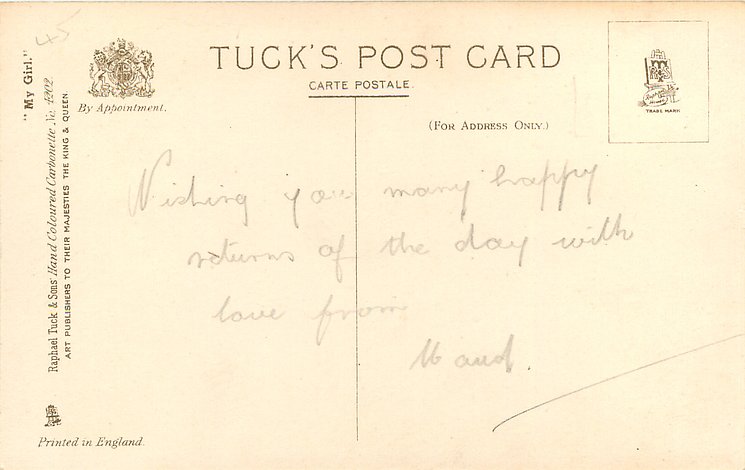 45
"My Girl."
Raphael Tuck & Sons' Hand Coloured Carbonette No. 4202
ART PUBLISHERS TO THEIR MAJESTIES THE KING & QUEEN
By Appointment.
TUCK'S POST CARD
CARTE POSTALE.
(FOR ADDRESS ONLY.)
TRADE MARK
Wishing you many happy
returns of the day with
love from
Maud.
Printed in England.